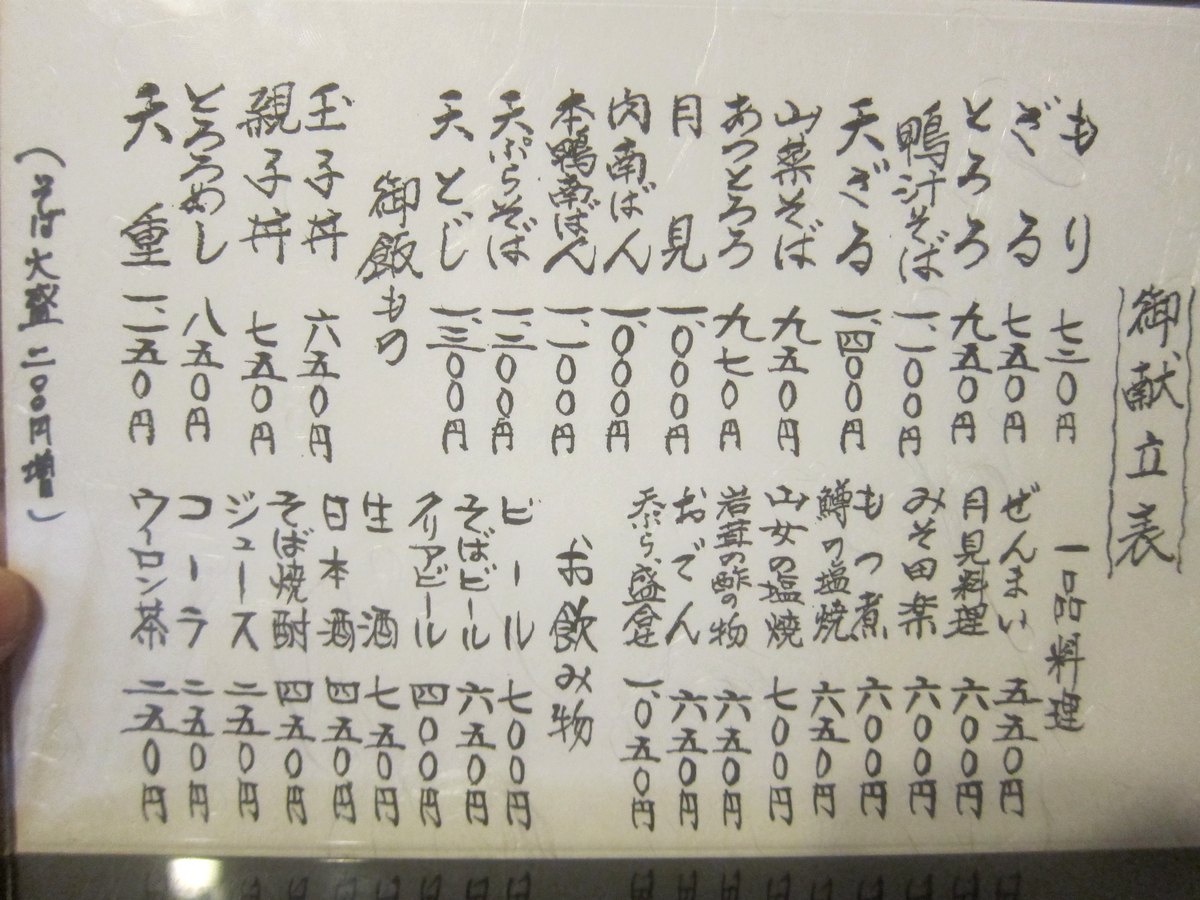 御献立表
もり 七二〇円
ざる 七五〇円
とろろ 九五〇円
鴨汁そば 一、一〇〇円
天ざる 一、四〇〇円
山菜そば 九五〇円
あつとろろ 九七〇円
月見 一、〇〇〇円
肉南ばん 一、〇〇〇円
本鴨南ばん 一、一〇〇円
天ぷらそば 一、二〇〇円
天とじ 一、三〇〇円
御飯もの
玉子丼 六五〇円
親子丼 七五〇円
とろろめし 八五〇円
天重 一、一五〇円
(そば大盛 二〇〇円増)
一品料理
ぜんまい 五五〇円
月見料理 六〇〇円
みそ田楽 六〇〇円
もつ煮 六〇〇円
鱒の塩焼 六五〇円
山女の塩焼 七〇〇円
岩茸の酢の物 六五〇円
おでん 六五〇円
天ぷら盛合せ 一、〇五〇円
お飲み物
ビール 七〇〇円
そばビール 六五〇円
クリアビール 四〇〇円
生酒 七五〇円
日本酒 四五〇円
そば焼酎 四五〇円
ジュース 二五〇円
コーラ 二五〇円
ウーロン茶 二五〇円